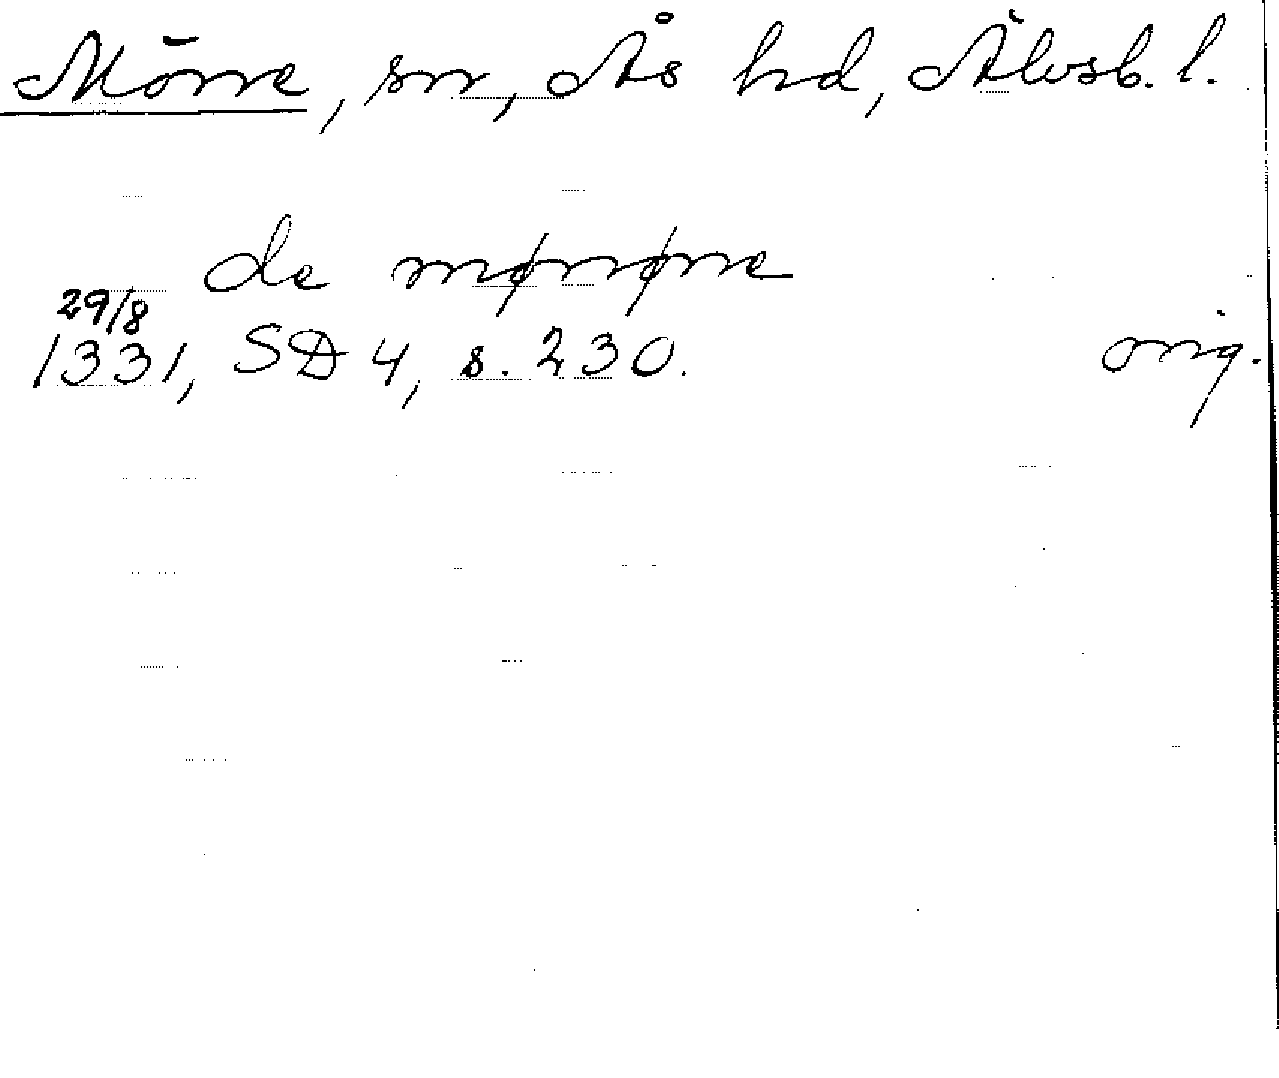 Möne, sn, Ås hd, Älvsb. l.
de mønøne
29/8
1331, SD 4, s. 230. orig.